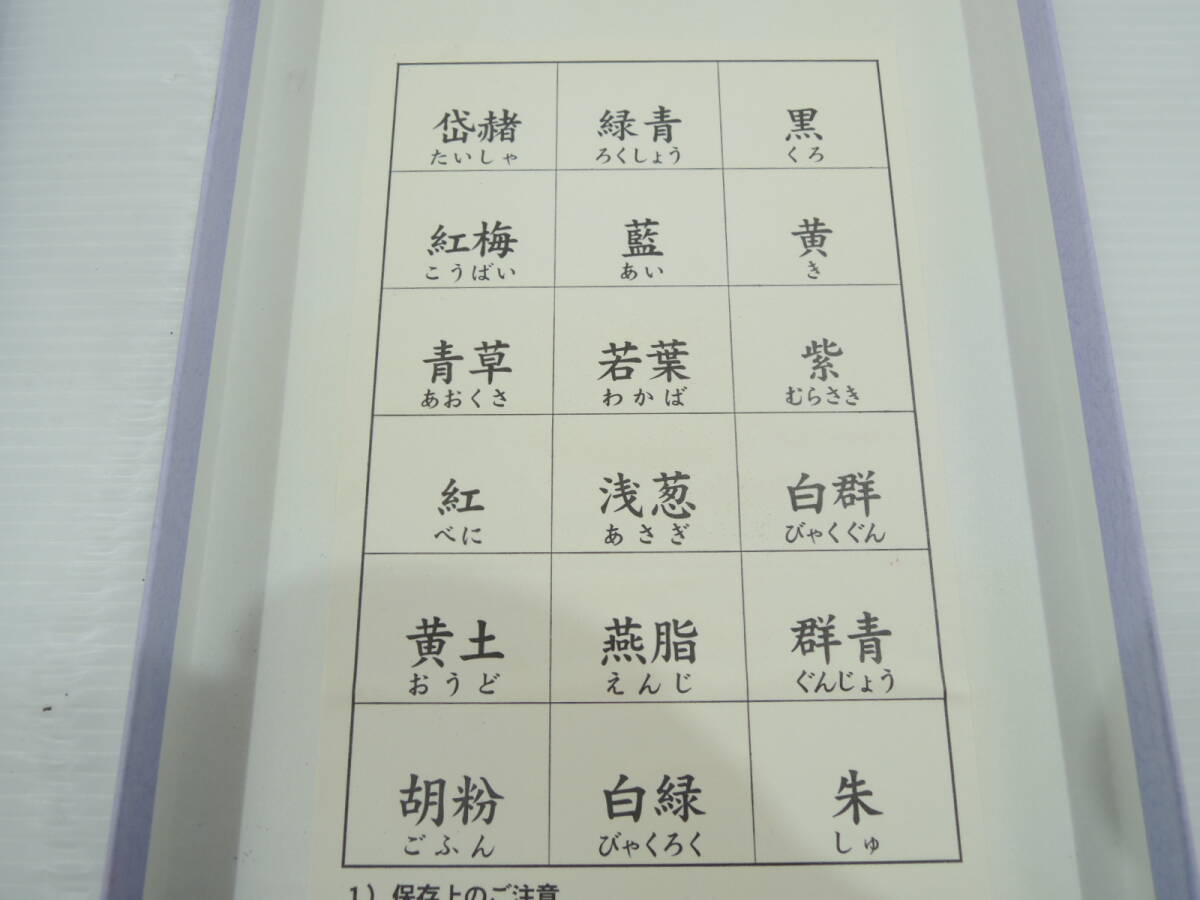 岱赭 緑青 黒
たいしゃ ろくしょう くろ
紅梅 藍 黄
こうばい あい き
青草 若葉 紫
あおくさ わかば むらさき
紅 浅葱 白群
べに あさぎ びゃくぐん
黄土 燕脂 群青
おうど えんじ ぐんじょう
胡粉 白緑 朱
ごふん びゃくろく しゅ
1）保存上のご注意